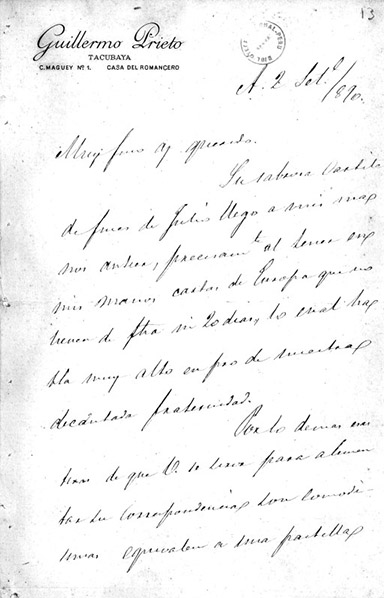 13
Guillermo Prieto
TACUBAYA
C. MAGUEY Nº 1. CASA DEL ROMANCERO
A. 2 Set.e/890.
Muy fino y querido.
Su sabrosa cartita
de fines de Julio llego a mis ma
nos antier, precisamte al tener en
mis manos cartas de Europa que no
tienen de fha ni 20 dias, lo cual ha
bla muy alto en pro de nuestra
decantada fraternidad.
Por lo demas esas
de que U. se sirve para alimen
tar su correspondencia son comodi
simas equivalen a una pastilla